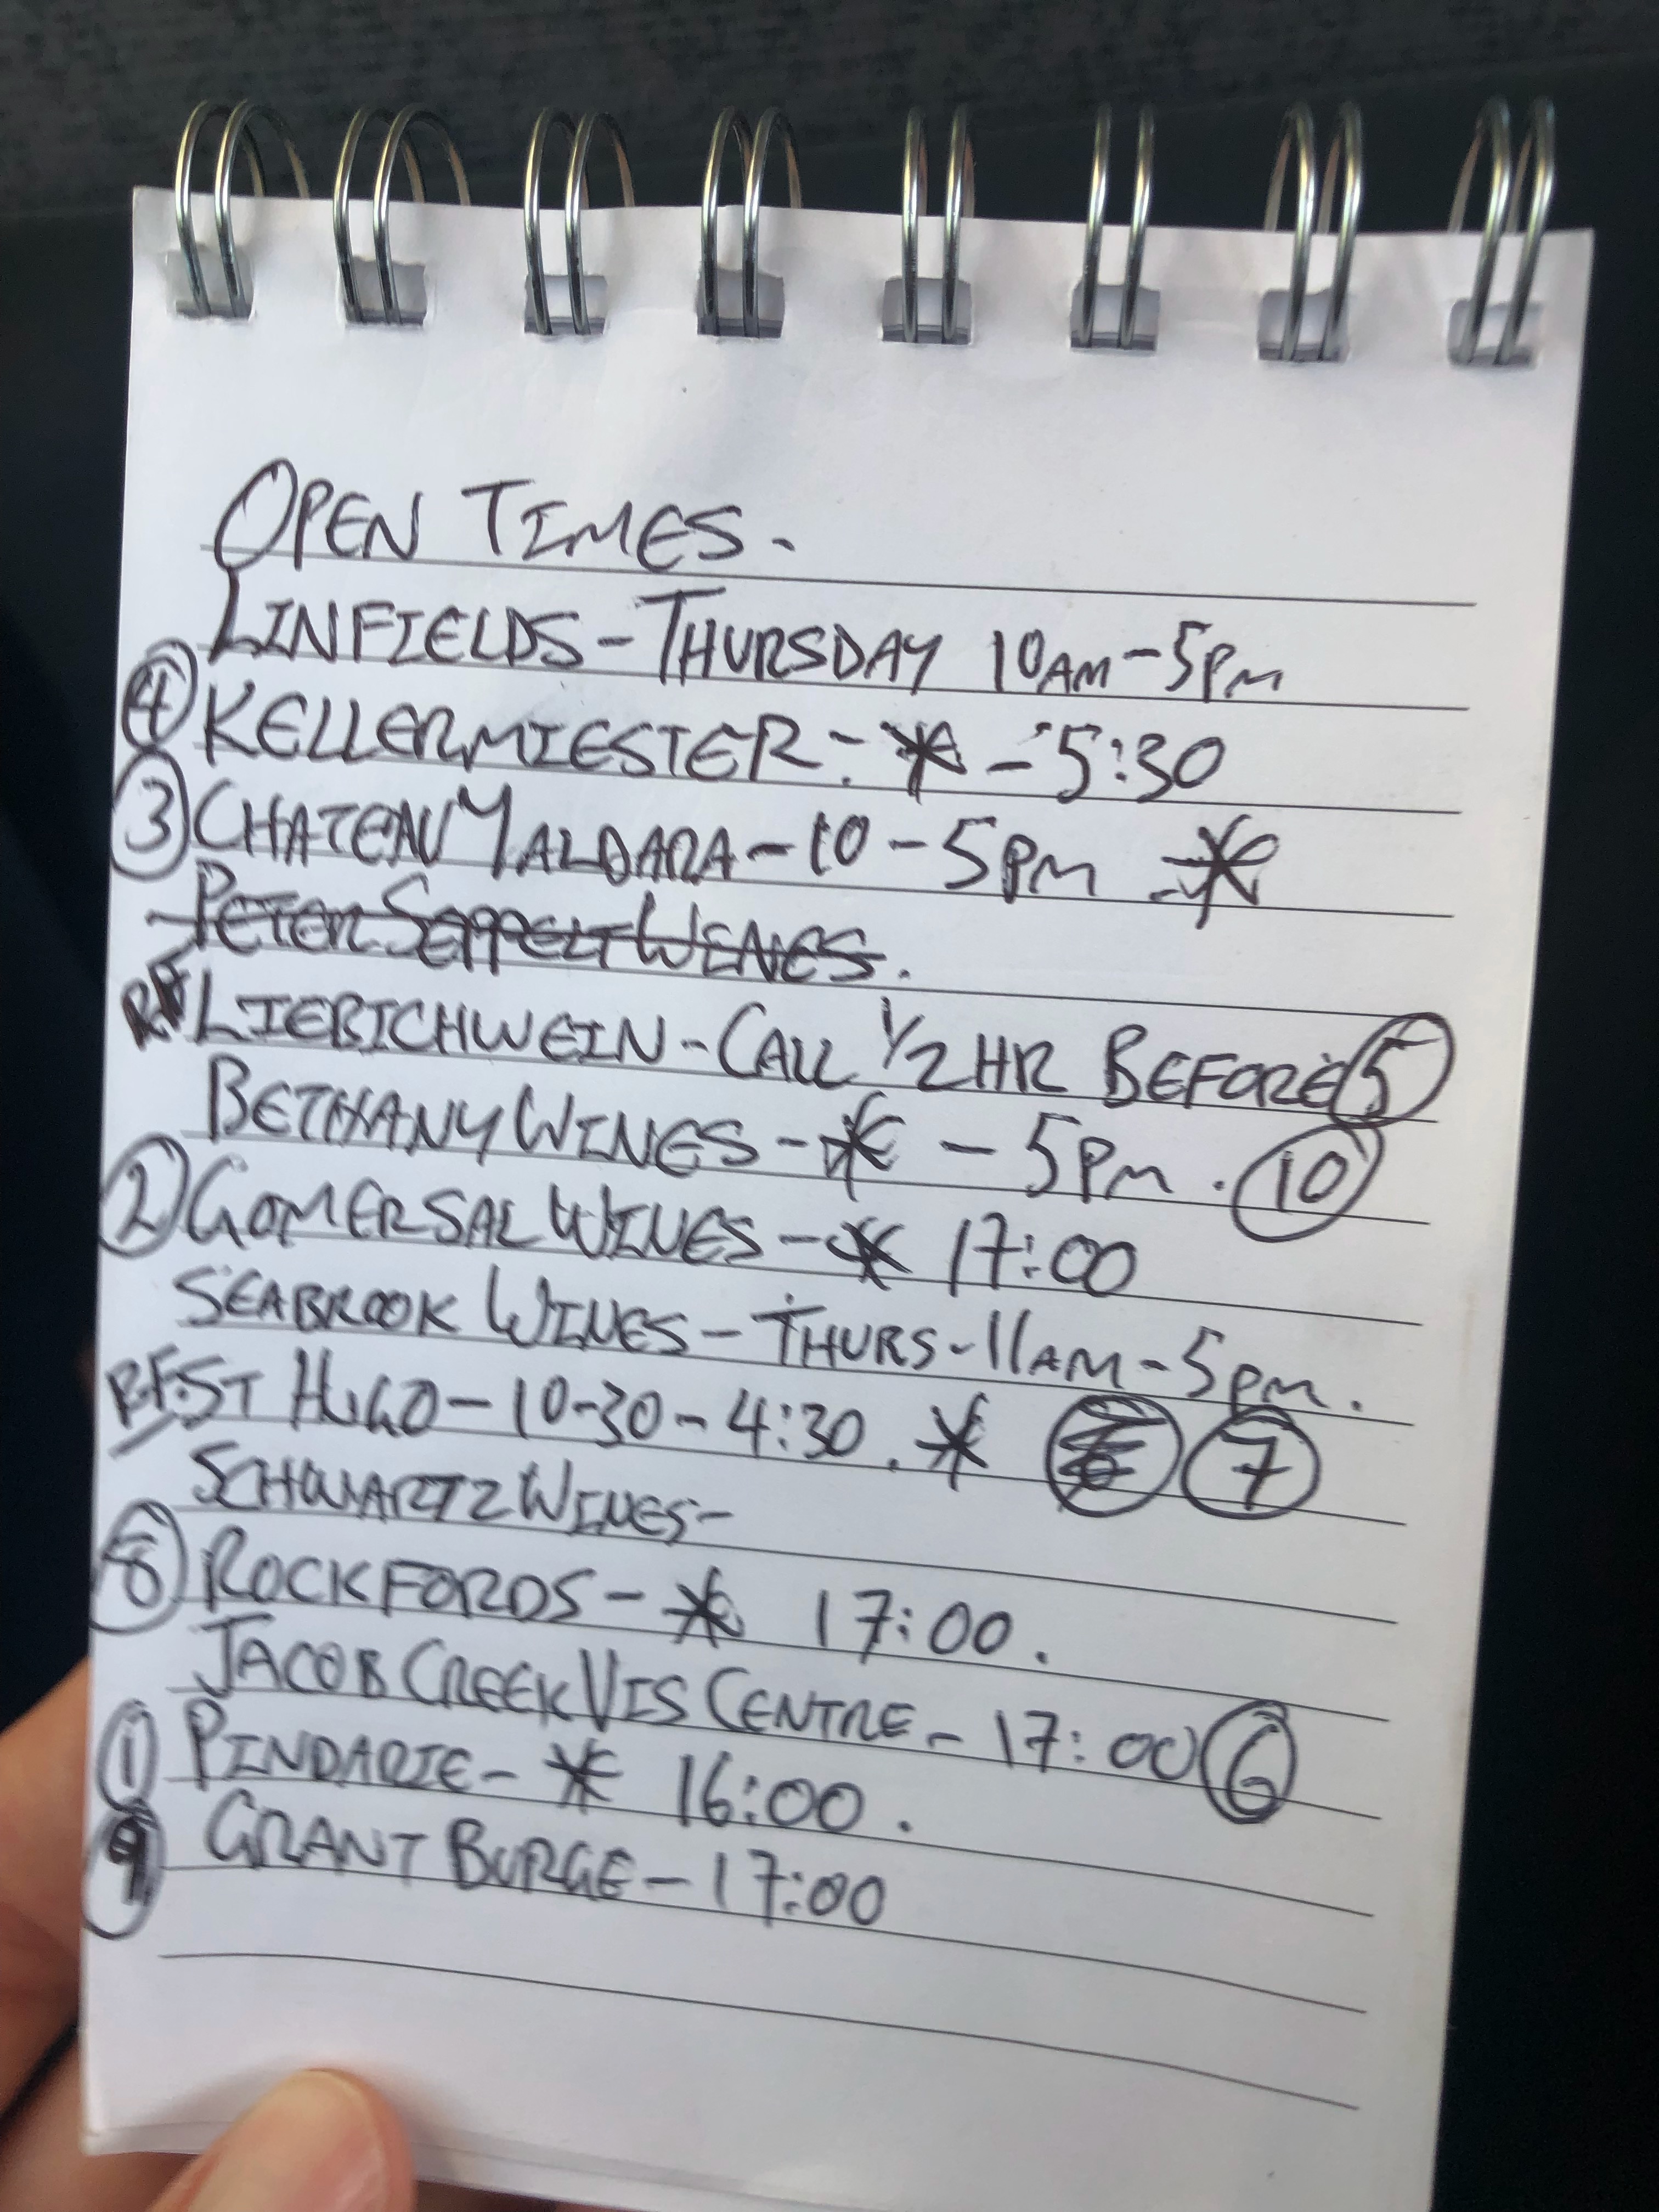 OPEN TIMES.
LINFIELDS - THURSDAY 10AM - 5PM
④ KELLERMIESTER - * - 5:30
③ CHATEAU YALDARA - 10 - 5PM *
PETER SEPPELT WINES.
LIEBICHWEIN - CALL 1/2 HR BEFORE ⑤
BETHANY WINES - * - 5PM. ⑩
② GOMERSAL WINES - * 17:00
SEABROOK WINES - THURS - 11AM - 5PM.
BEST HUGO - 10-30 - 4:30. * ⑦
SCHWARTZ WINES -
⑧ ROCKFORDS - * 17:00.
JACOB CREEK VIS CENTRE - 17:00 ⑥
① PINDARIE - * 16:00.
⑨ GRANT BURGE - 17:00